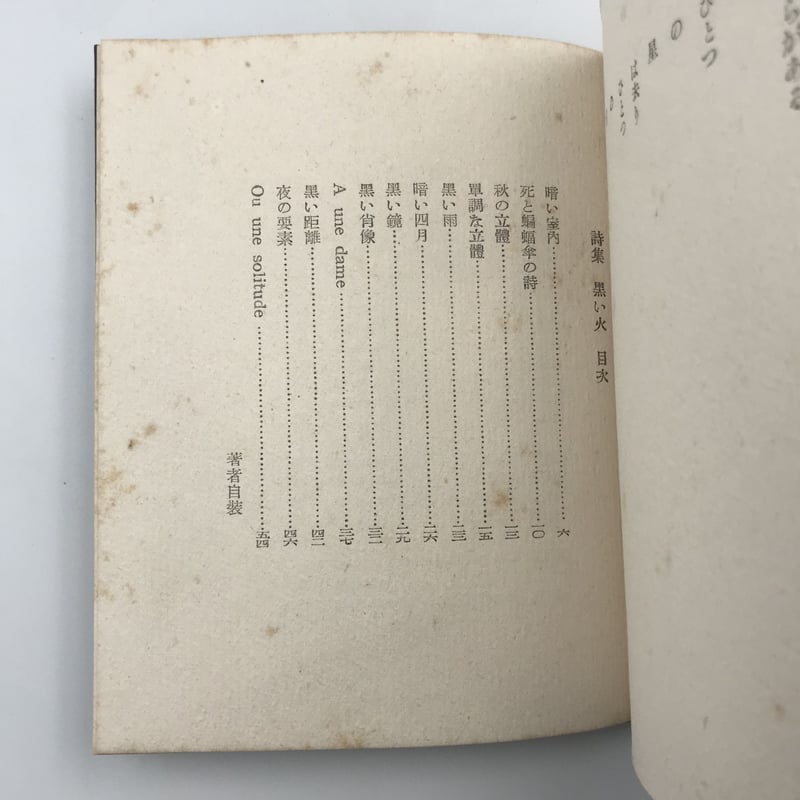 らがある
ひとつ
の
星
の
ひとつ
の
詩集 黑い火 目次
暗い室內……六
死と蝙蝠傘の詩……一〇
秋の立體……一三
單調な立體……一五
黑い雨……二三
暗い四月……二六
黑い鏡……二九
黑い肖像……三二
A une dame……三七
黑い距離……四二
夜の要素……四六
Ou une solitude……五四
著者自裝